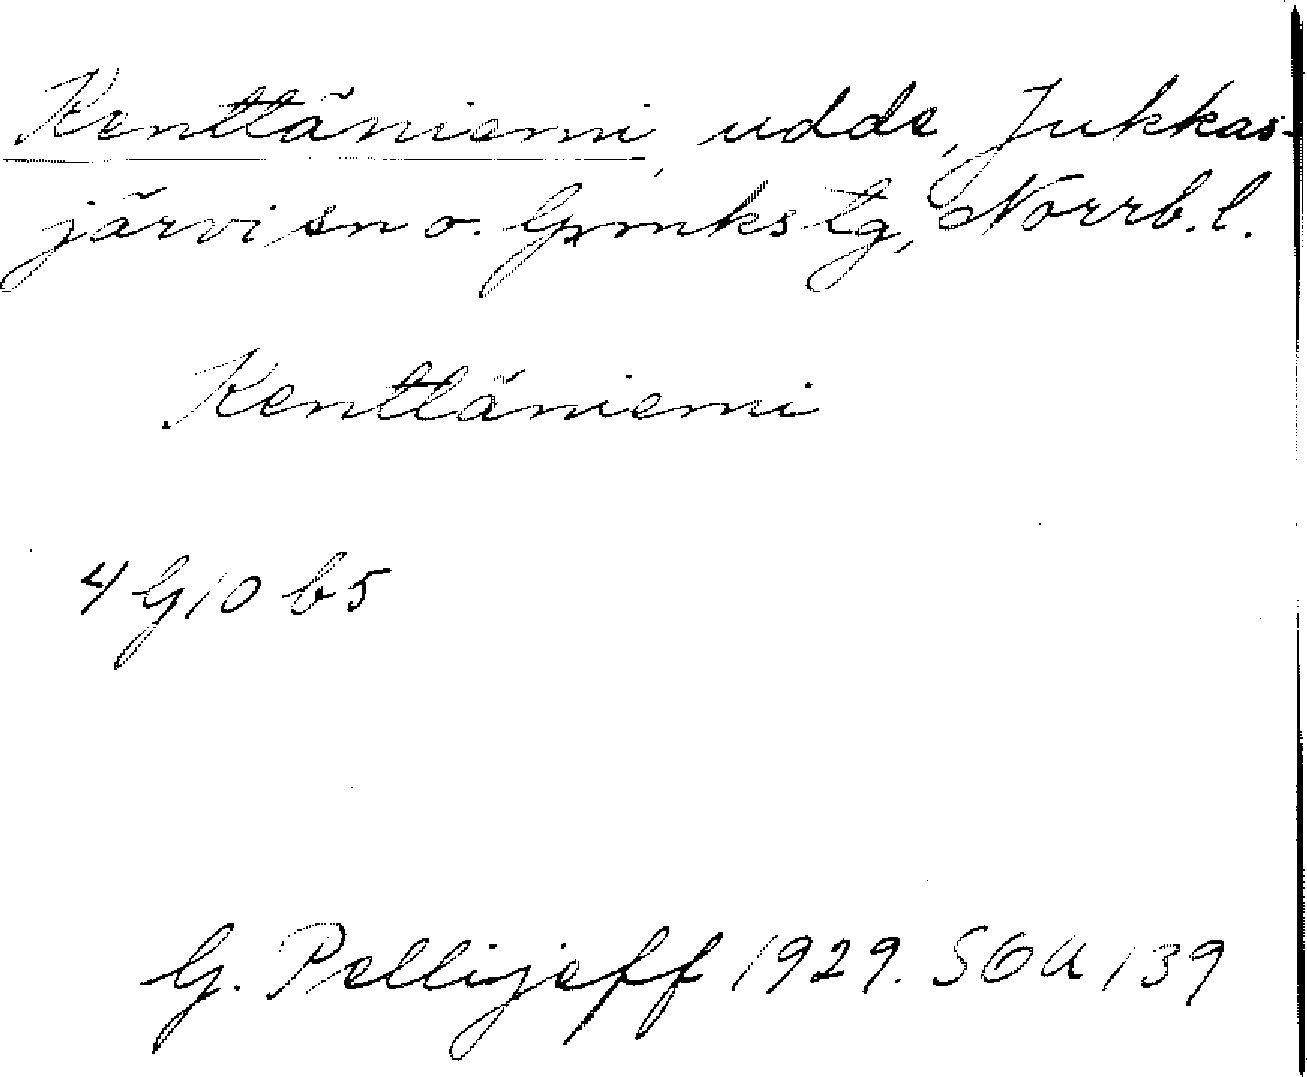 Kenttäniemi, udde, Jukkas-
järvi sn o. Gmks tg, Norrb. l.
Kenttäniemi
4 G 10 b 5
G. Pellijeff 1929. SOA 139